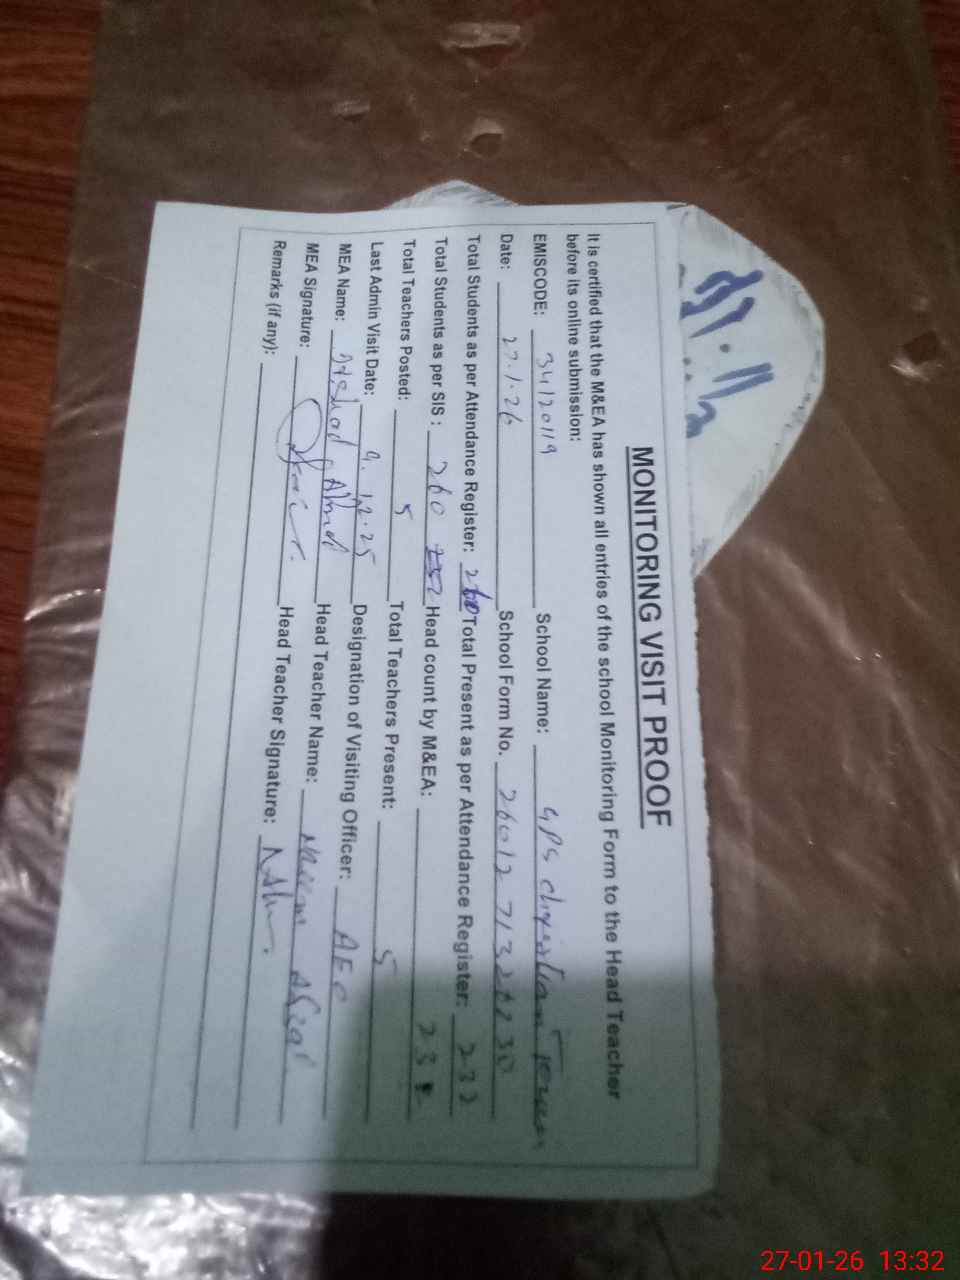 MONITORING VISIT PROOF
It is certified that the M&EA has shown all entries of the school Monitoring Form to the Head Teacher
before its online submission:
EMISCODE: 34120119 School Name: GPS
Date: 27.1.26 School Form No.
Total Students as per Attendance Register: 260 Total Present as per Attendance Register: 232
Total Students as per SIS : 260 Head count by M&EA:
Total Teachers Posted: 5 Total Teachers Present: 5
Last Admin Visit Date: 9.12.25 Designation of Visiting Officer: AEO
MEA Name: Head Teacher Name:
MEA Signature: Head Teacher Signature:
Remarks (if any):
27-01-26 13:32